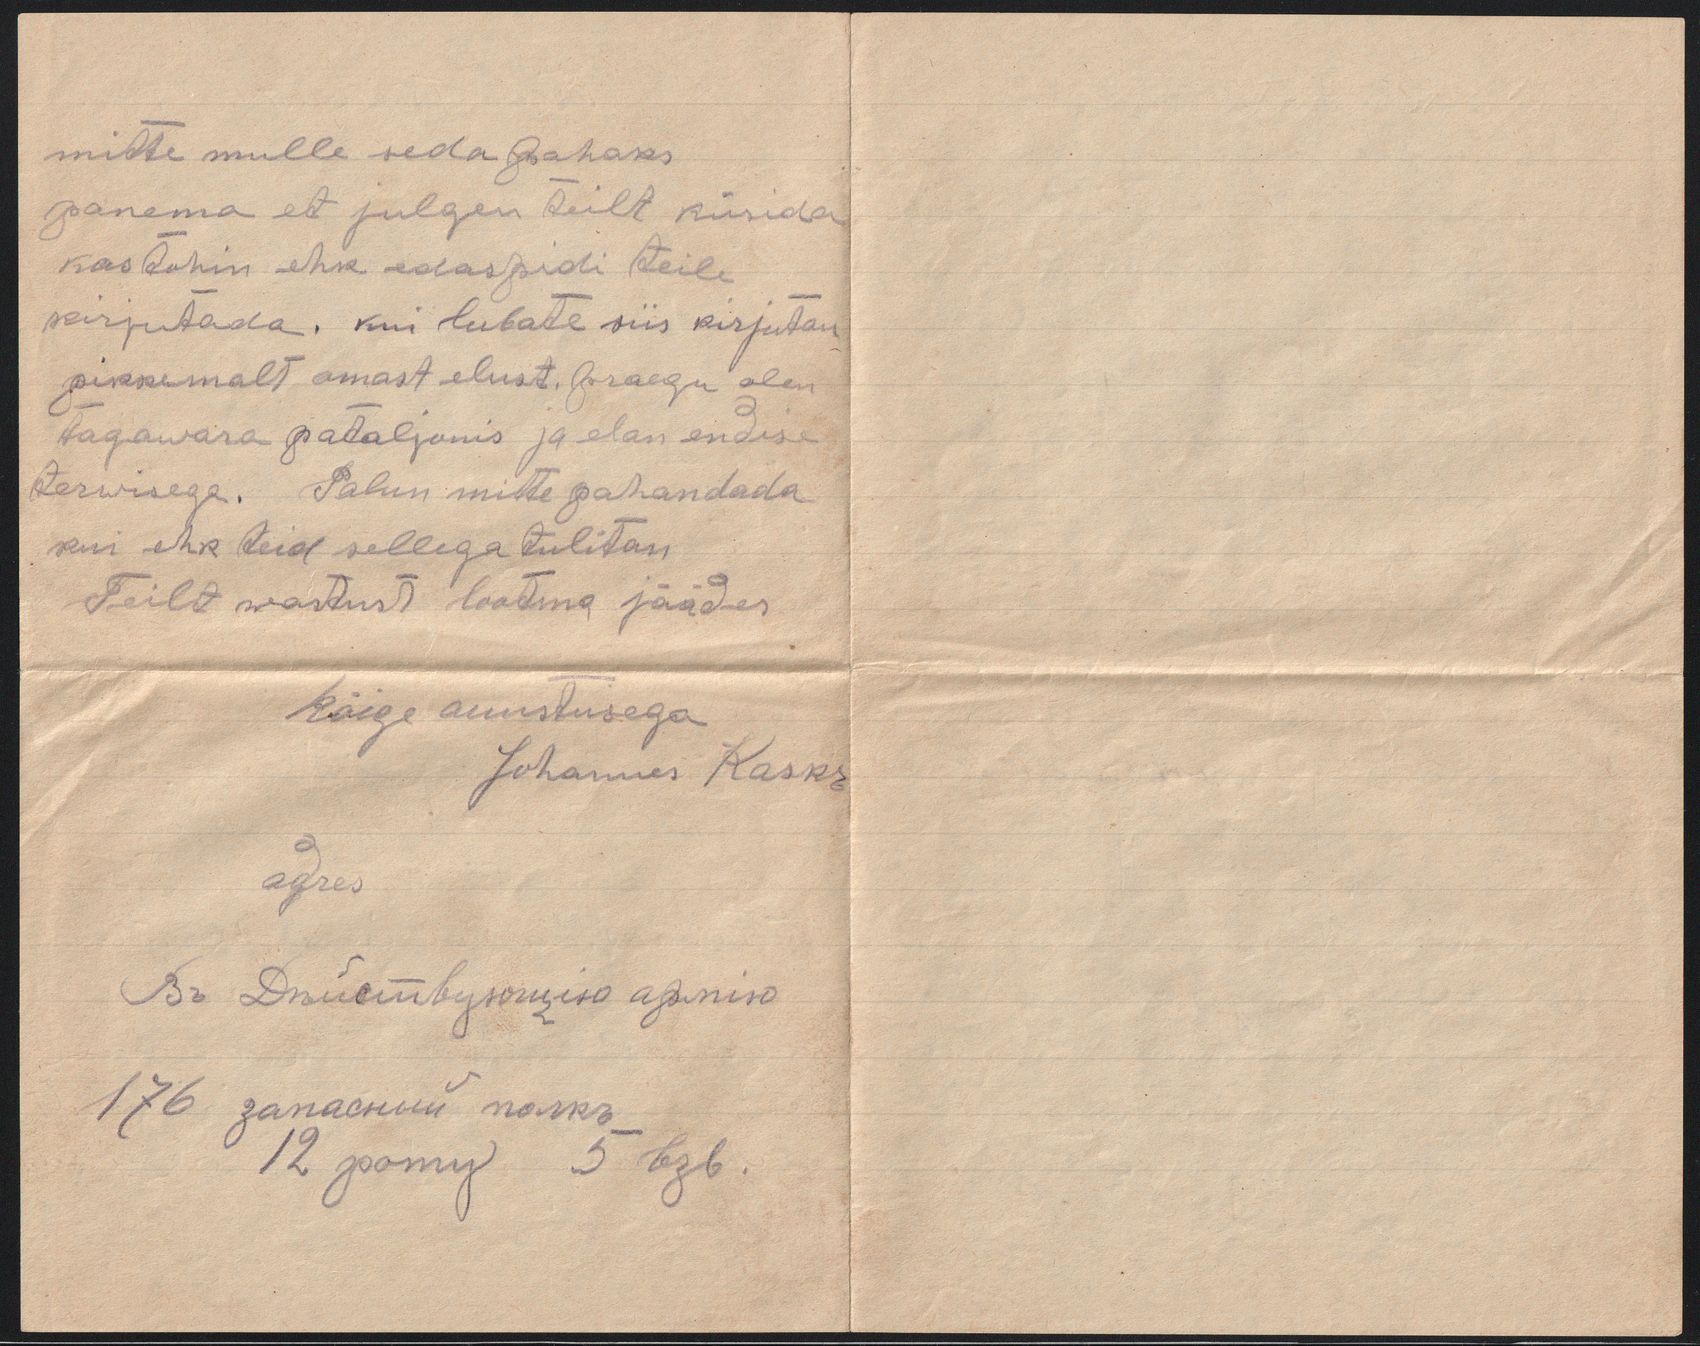 mitte mulle seda pahaks
panema et julgen teilt küsida
kas tohin ehk edaspidi teile
kirjutada. kui lubate siis kirjutan
pikkemalt omast elust. praegu olen
tagawara pataljonis ja elan endise
terwisega. Palun mitte pahandada
kui ehk teid sellega tülitan
Teilt wastust lootma jäädes
Kõige auustusega
Johannes Kaskъ
adres
Въ Дѣйствующію армію
176 запасный полкъ
12 роту 5 взв.